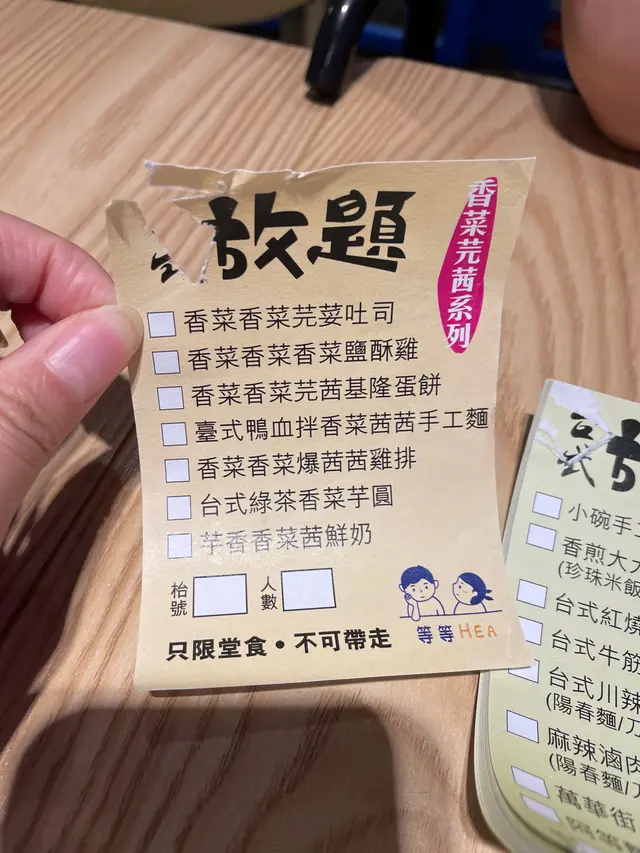 放題
香菜芫茜系列
香菜香菜芫荽吐司
香菜香菜香菜鹽酥雞
香菜香菜芫茜基隆蛋餅
臺式鴨血拌香菜茜茜手工麵
香菜香菜爆茜茜雞排
台式綠茶香菜芋圓
芋香香菜茜鮮奶
枱號
人數
只限堂食•不可帶走
等等HEA
小碗手工
香煎大大
(珍珠米飯
台式紅燒
台式牛筋
台式川辣
(陽春麵/刀
麻辣滷肉
(陽春麵/刀
萬華街